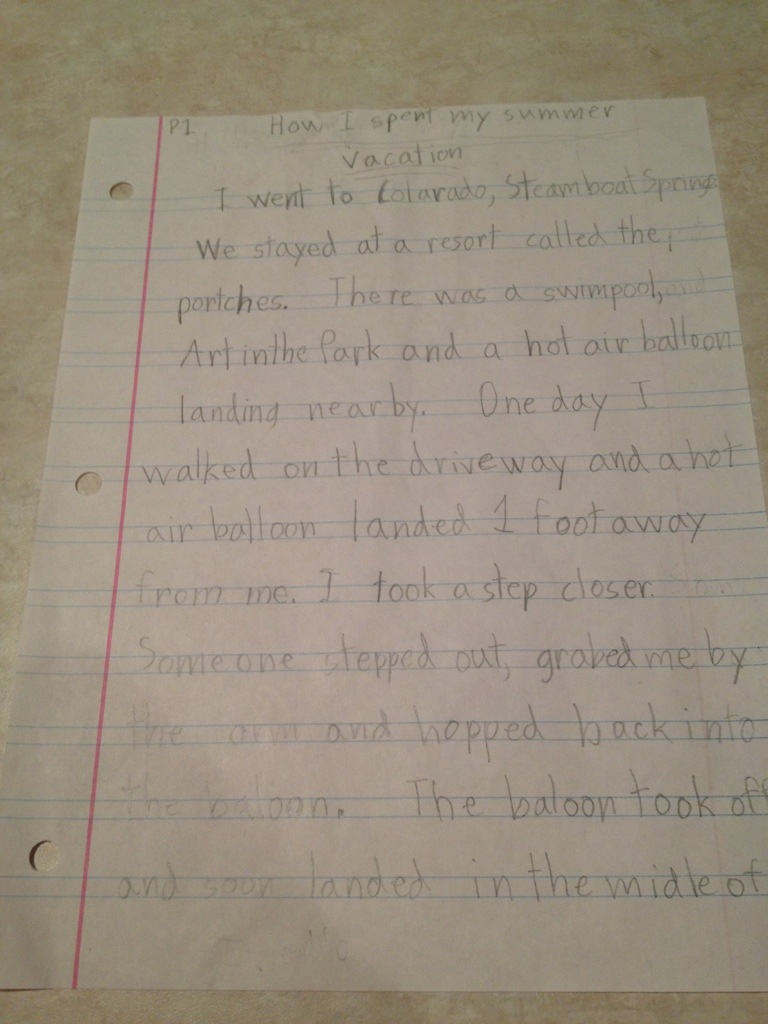 P1 How I spent my summer
vacation
I went to Colarado, Steamboat Springs.
We stayed at a resort called the,
portches. There was a swimpool,
Art in the Park and a hot air balloon
landing nearby. One day I
walked on the driveway and a hot
air balloon landed 1 foot away
from me. I took a step closer.
Someone stepped out, grabed me by
the arm and hopped back into
the baloon. The baloon took off
and soon landed in the midle of